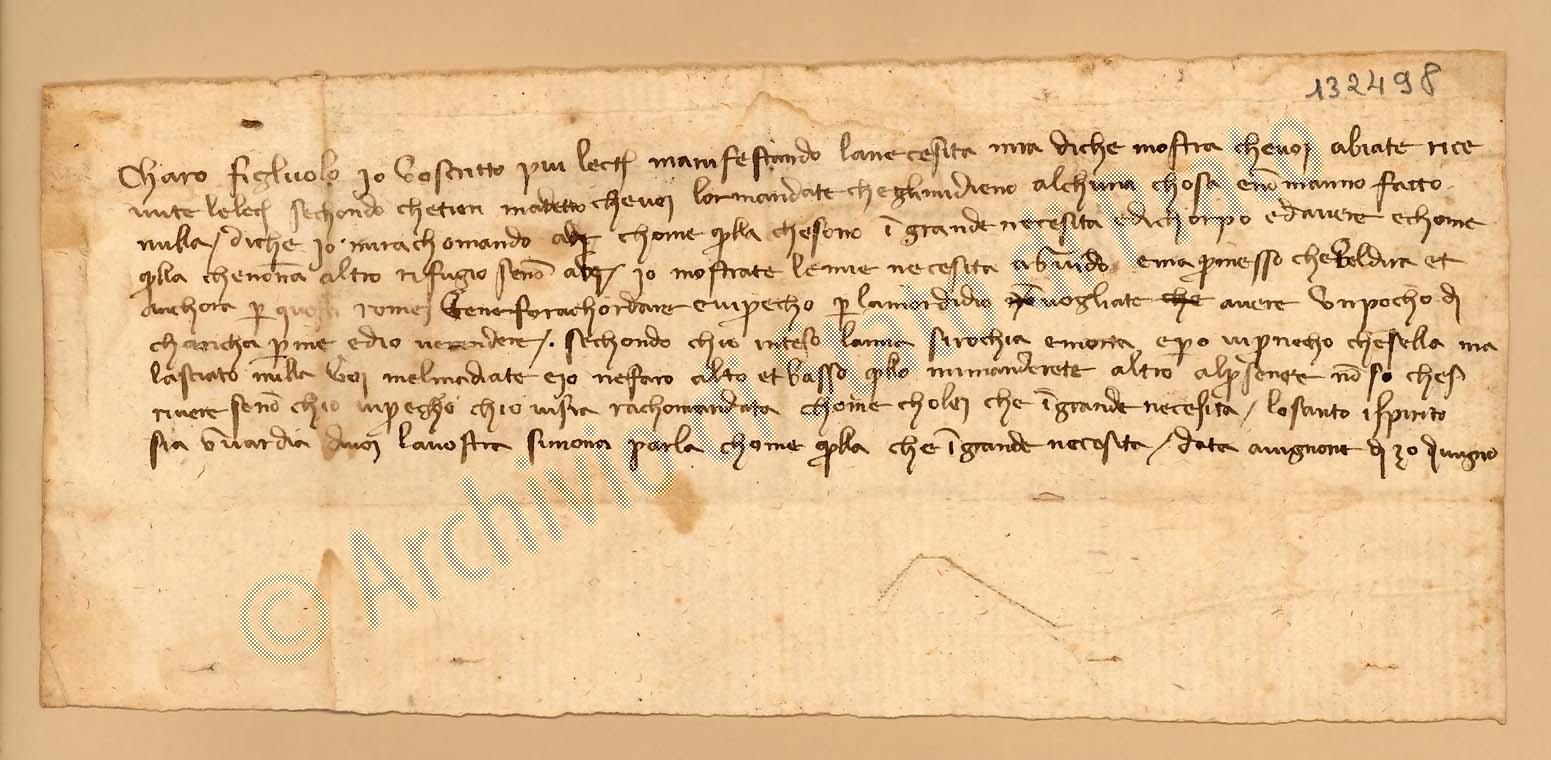 132498
Charo figluolo io voscritto piu lecte manifestando lanecesita mia diche mostra chevoi abiate rice
vute lelec sechondo chetieri madetto chevoi lormandate cheglimidieno alchuna chosa enomanno fatto
nulla / diche io mirachomando chome qlla chesono i grande necesita edichorpo edavere echome
qlla chenona altro rifugio seno io mostrate lemie necesita emia promesso che et
anchora p romei p lamordidio vogliate che avere unpocho di
p me edio / sechondo chio inteso lamia sirochia emorta epo chesella ma
lasciato nulla voi melmadiate eio nefaro alto et basso qllo mimanderete altro alpresente no so ches
rivere seno chio chio visia rachomandata chome cholei che i grande necesita / losanto ispirito
sia guardia divoi lavostra simona parla chome qlla che i grande necesita / data avignone di 20 giungno
© Archivio di Stato di Prato